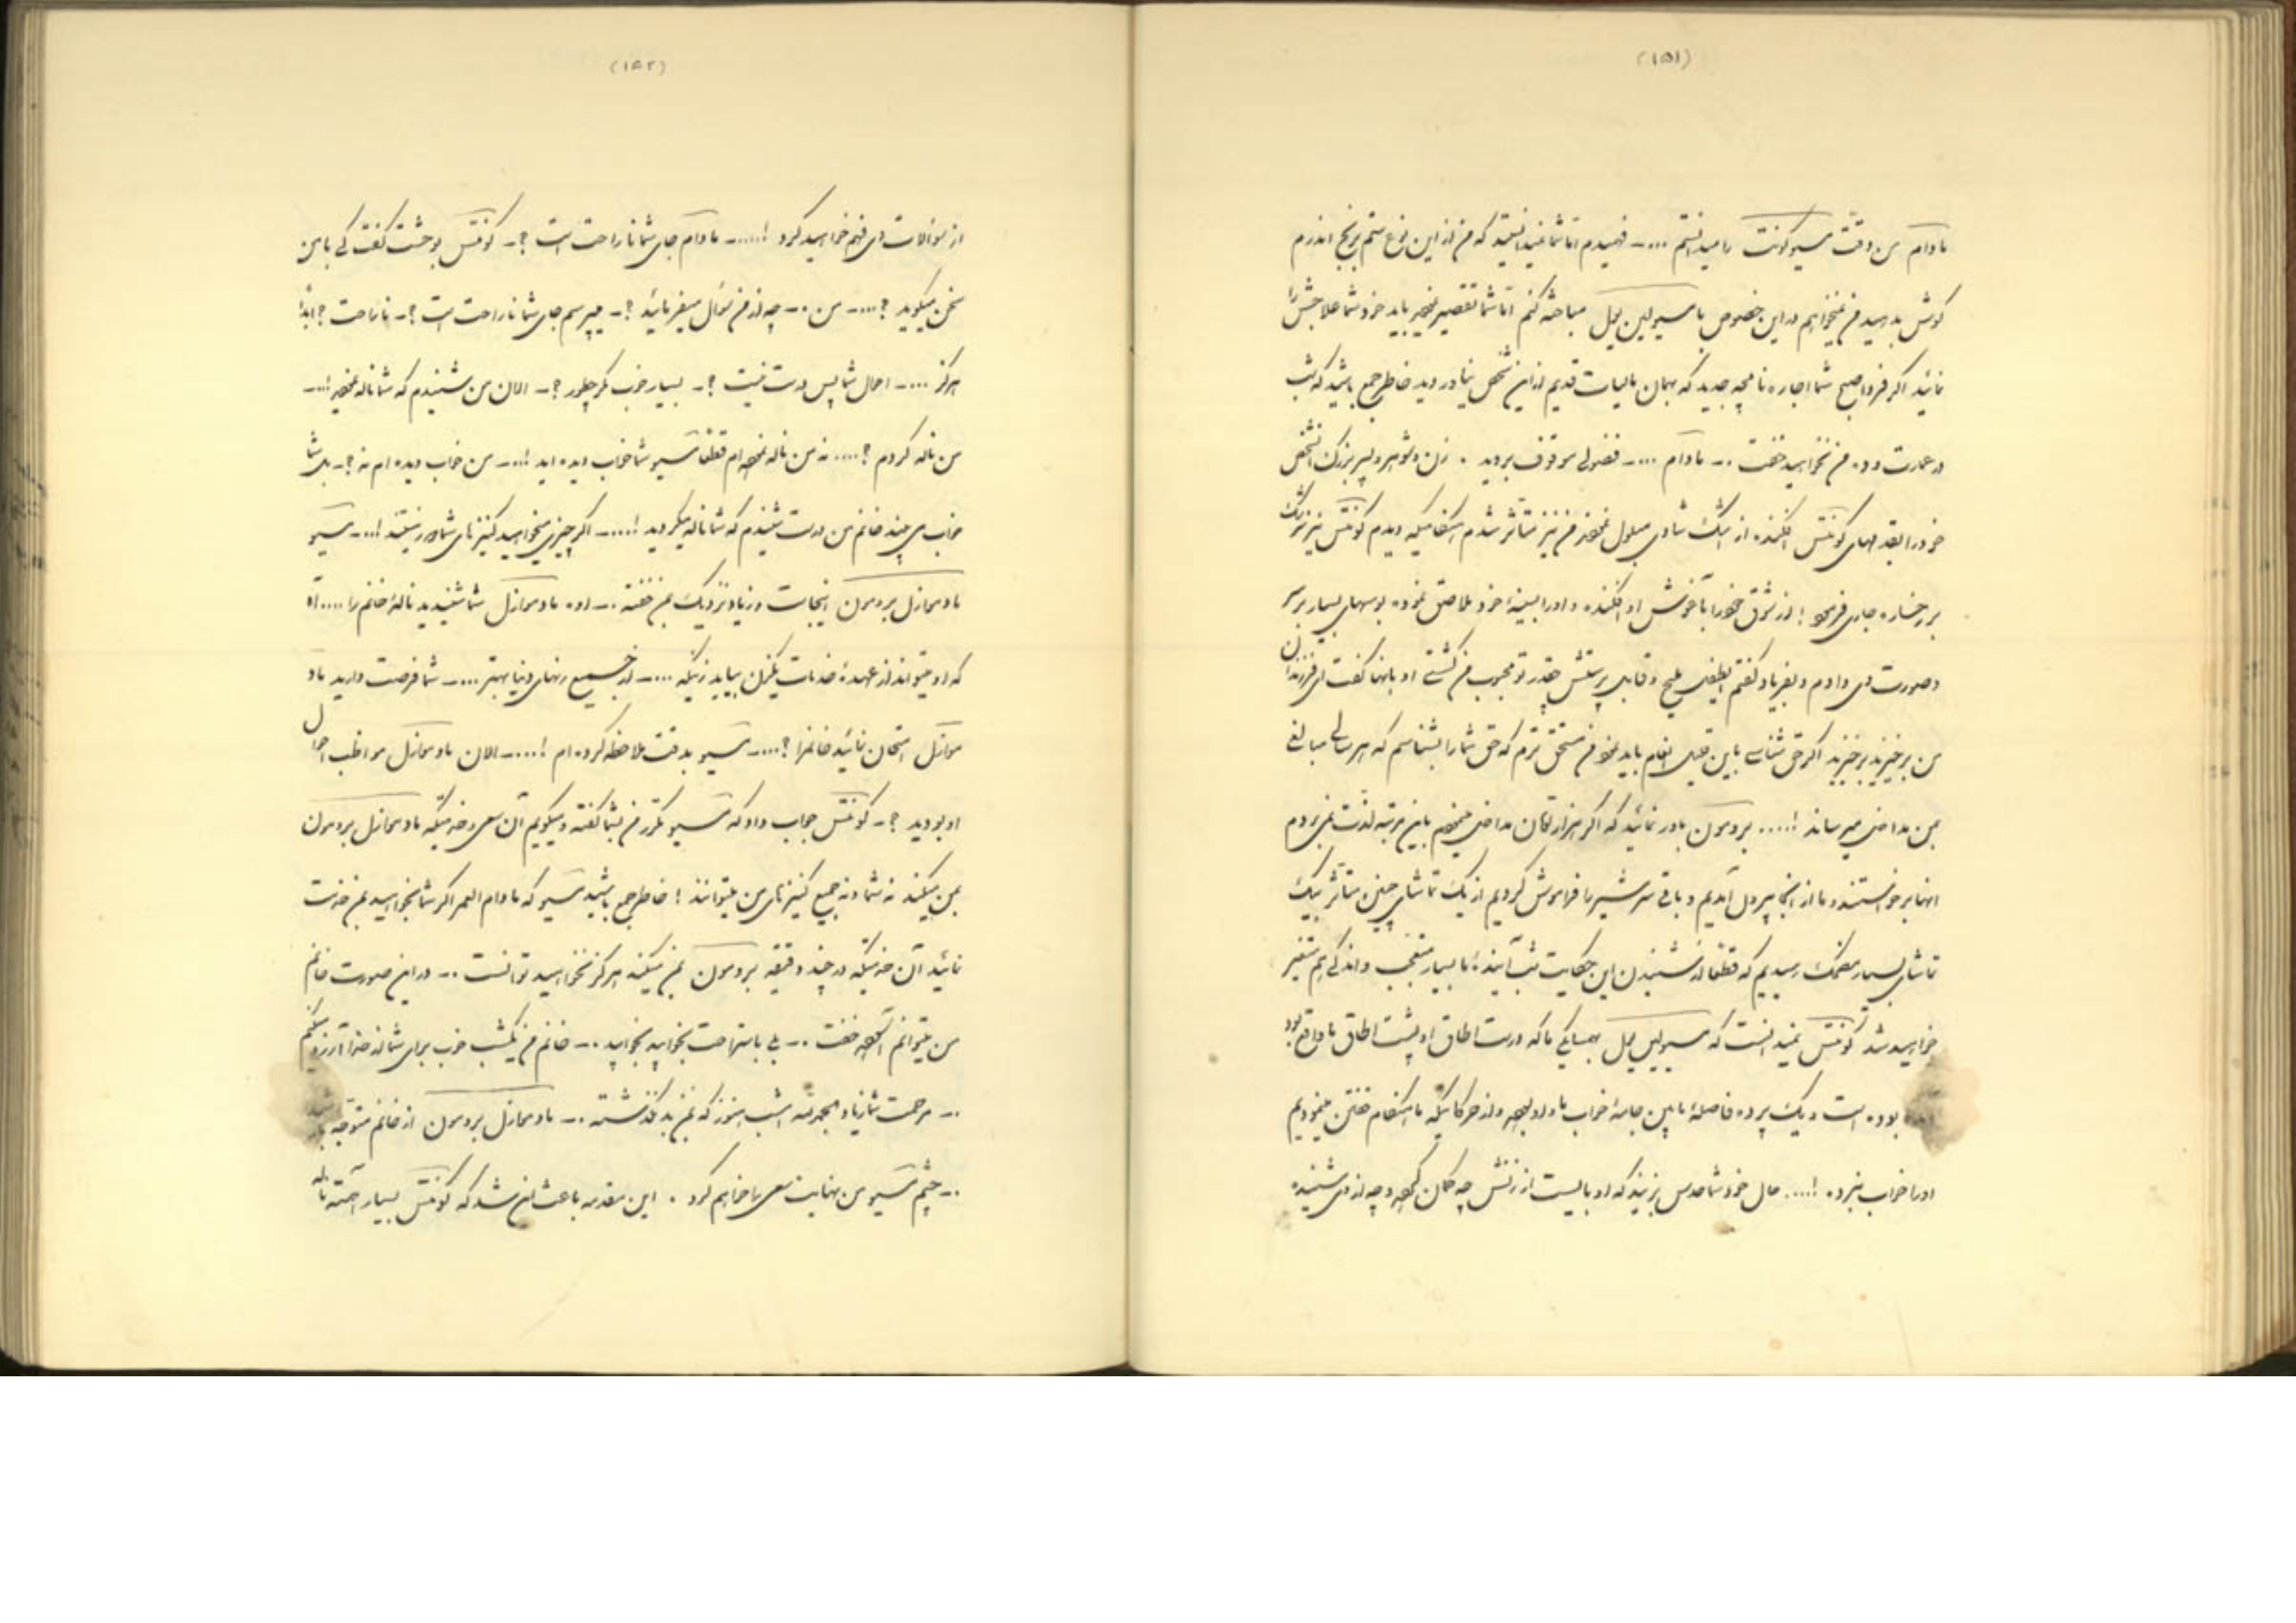 (۱۵۱)
مادام من وقت مسیو کونت را میدانستم .... ـ فهمیدم اما شما نمیدانستید که من از این نوع ستم برنج اندرم
گوش بدهید من نمیخواهم در این خصوص با مسیو لین یل مباحثه کنم اما شما تقصیر باید خود شما علاجش را
نمائید اگر فردا صبح شما اجاره نامچه جدید که بهمان مالیات قدیم از این شخص نیاوردید خاطر جمع باشید که شب
در عمارت ده من نخواهید خفت .ـ مادام .... ـ فضولی موقوف بروید . زن و شوهر و پسر بزرگ شخص
خود را بقدمهای کونتس افکنده از اشک شادی مبلول من نیز متأثر شدم هنگامیکه دیدم کونتس نیز اشک
بر رخساره جاری فرمود ؛ از شوق خود را بآغوش او افکنده و او را بسینه خود ملاصق نموده بوسهای بسیار بر سر
و صورت وی دادم و بفریاد گفتم ای ملیح و قابل پرستش چقدر تو محبوب من گشتی او بآنها گفت ای فرزندان
من برخیزید برخیزید اگر حق شناسی باین قلیل انعام باید من مستحق ترم که حق شما را بشناسم که هر سالی مبالغی
بمن مداخل میرساند !.... بروسون باور نمائید که اگر هزار تومان مداخل باین مرتبه لذت نمی بردم
آنها برخواستند و ما از آنجا بیرون آمدیم و باقی سرشیر را فراموش کردیم از یک تماشای چنین متأثر بیک
تماشای بسیار مضحک رسیدیم که قطعا از شنیدن این حکایت شب آینده ما بسیار متعجب و اندکی هم متغیر
خواهید شد کونتس نمیدانست که مسیو لین یل بهمسایگی ما که درست اطاق او پشت اطاق ما واقع بود
بوده است و یک پرده فاصله مابین جامه خواب ما و او بوده و از حرکاتیکه ما هنگام خفتن مینمودیم
او را خواب نبرده !.... حال خود شما حدس بزنید که او بایست از زنش چه گمان کرده و چه از وی شنیده
(۱۵۲)
از سؤالات وی فهم خواهید کرد !..... ـ مادام جای شما ناراحت است ؟ـ کونتس بوحشت گفت کی با من
سخن میگوید ؟.... ـ من .ـ چه از من سؤال میفرمائید ؟ـ میپرسم جای شما ناراحت است ؟ـ ناراحت ؟ ابداً
هرگز .... ـ احوال شما پس درست نیست ؟ـ بسیار خوب مگر چطور ؟ـ الان من شنیدم که شما ناله !..ـ
من ناله کردم ؟.... نه من ناله نکرده ام قطعاً مسیو شما خواب دیده اید !..ـ من خواب دیده ام نه ؟ـ بل شما
خواب می بینید خانم من درست شنیدم که شما ناله میکردید !.... ـ اگر چیزی میخواهید کنیزهای شما دور نیستند !..ـ مسیو
مادموازل بروسون اینجاست و زیاد نزدیک بمن خفته .ـ اوه مادموازل شما شنیدید ناله خانم را .... آه
که او میتواند از عهده خدمات من بیاید زنیکه .... ـ از جمیع زنهای دنیا بهتر .... ـ شما فرصت دارید ماد
موازل امتحان نمائید خانم را ؟.... ـ مسیو بدقت ملاحظه کرده ام !.... ـ الان مادموازل مواظب احوال
او بودید ؟ـ کونتس جواب داد که مسیو مکرر من بشما گفته و میگویم آن سعی و خدمتیکه مادموازل بروسون
بمن میکند نه شما و نه جمیع کنیزهای من میتوانند ! خاطر جمع باشید مسیو که مادام العمر اگر شما بخواهید بمن خدمت
نمائید آن خدمتیکه در چند دقیقه بروسون بمن میکند هرگز نخواهید توانست .ـ در این صورت خانم
من میتوانم آسوده خفت .ـ بلی باستراحت بخوابید بخوابید .ـ خانم من یکشب خوب برای شما از خدا آرزو میکنم
.ـ مرحمت شما زیاد بحمدالله امشب هنوز که بمن بد نگذشته .ـ مادموازل بروسون از خانم متوجه باشید
.ـ چشم مسیو من نهایت سعی را خواهم کرد . این مقدمه باعث این شد که کونتس بسیار آهسته ناله